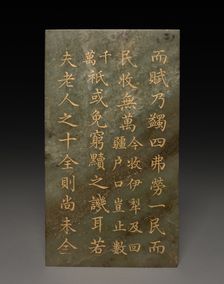 而賦乃蠲四弗勞一民而
民收無萬今收伊犁及回
疆戶口豈止數
千
萬祇或免窮黷之譏耳若
夫老人之十全則尚未全